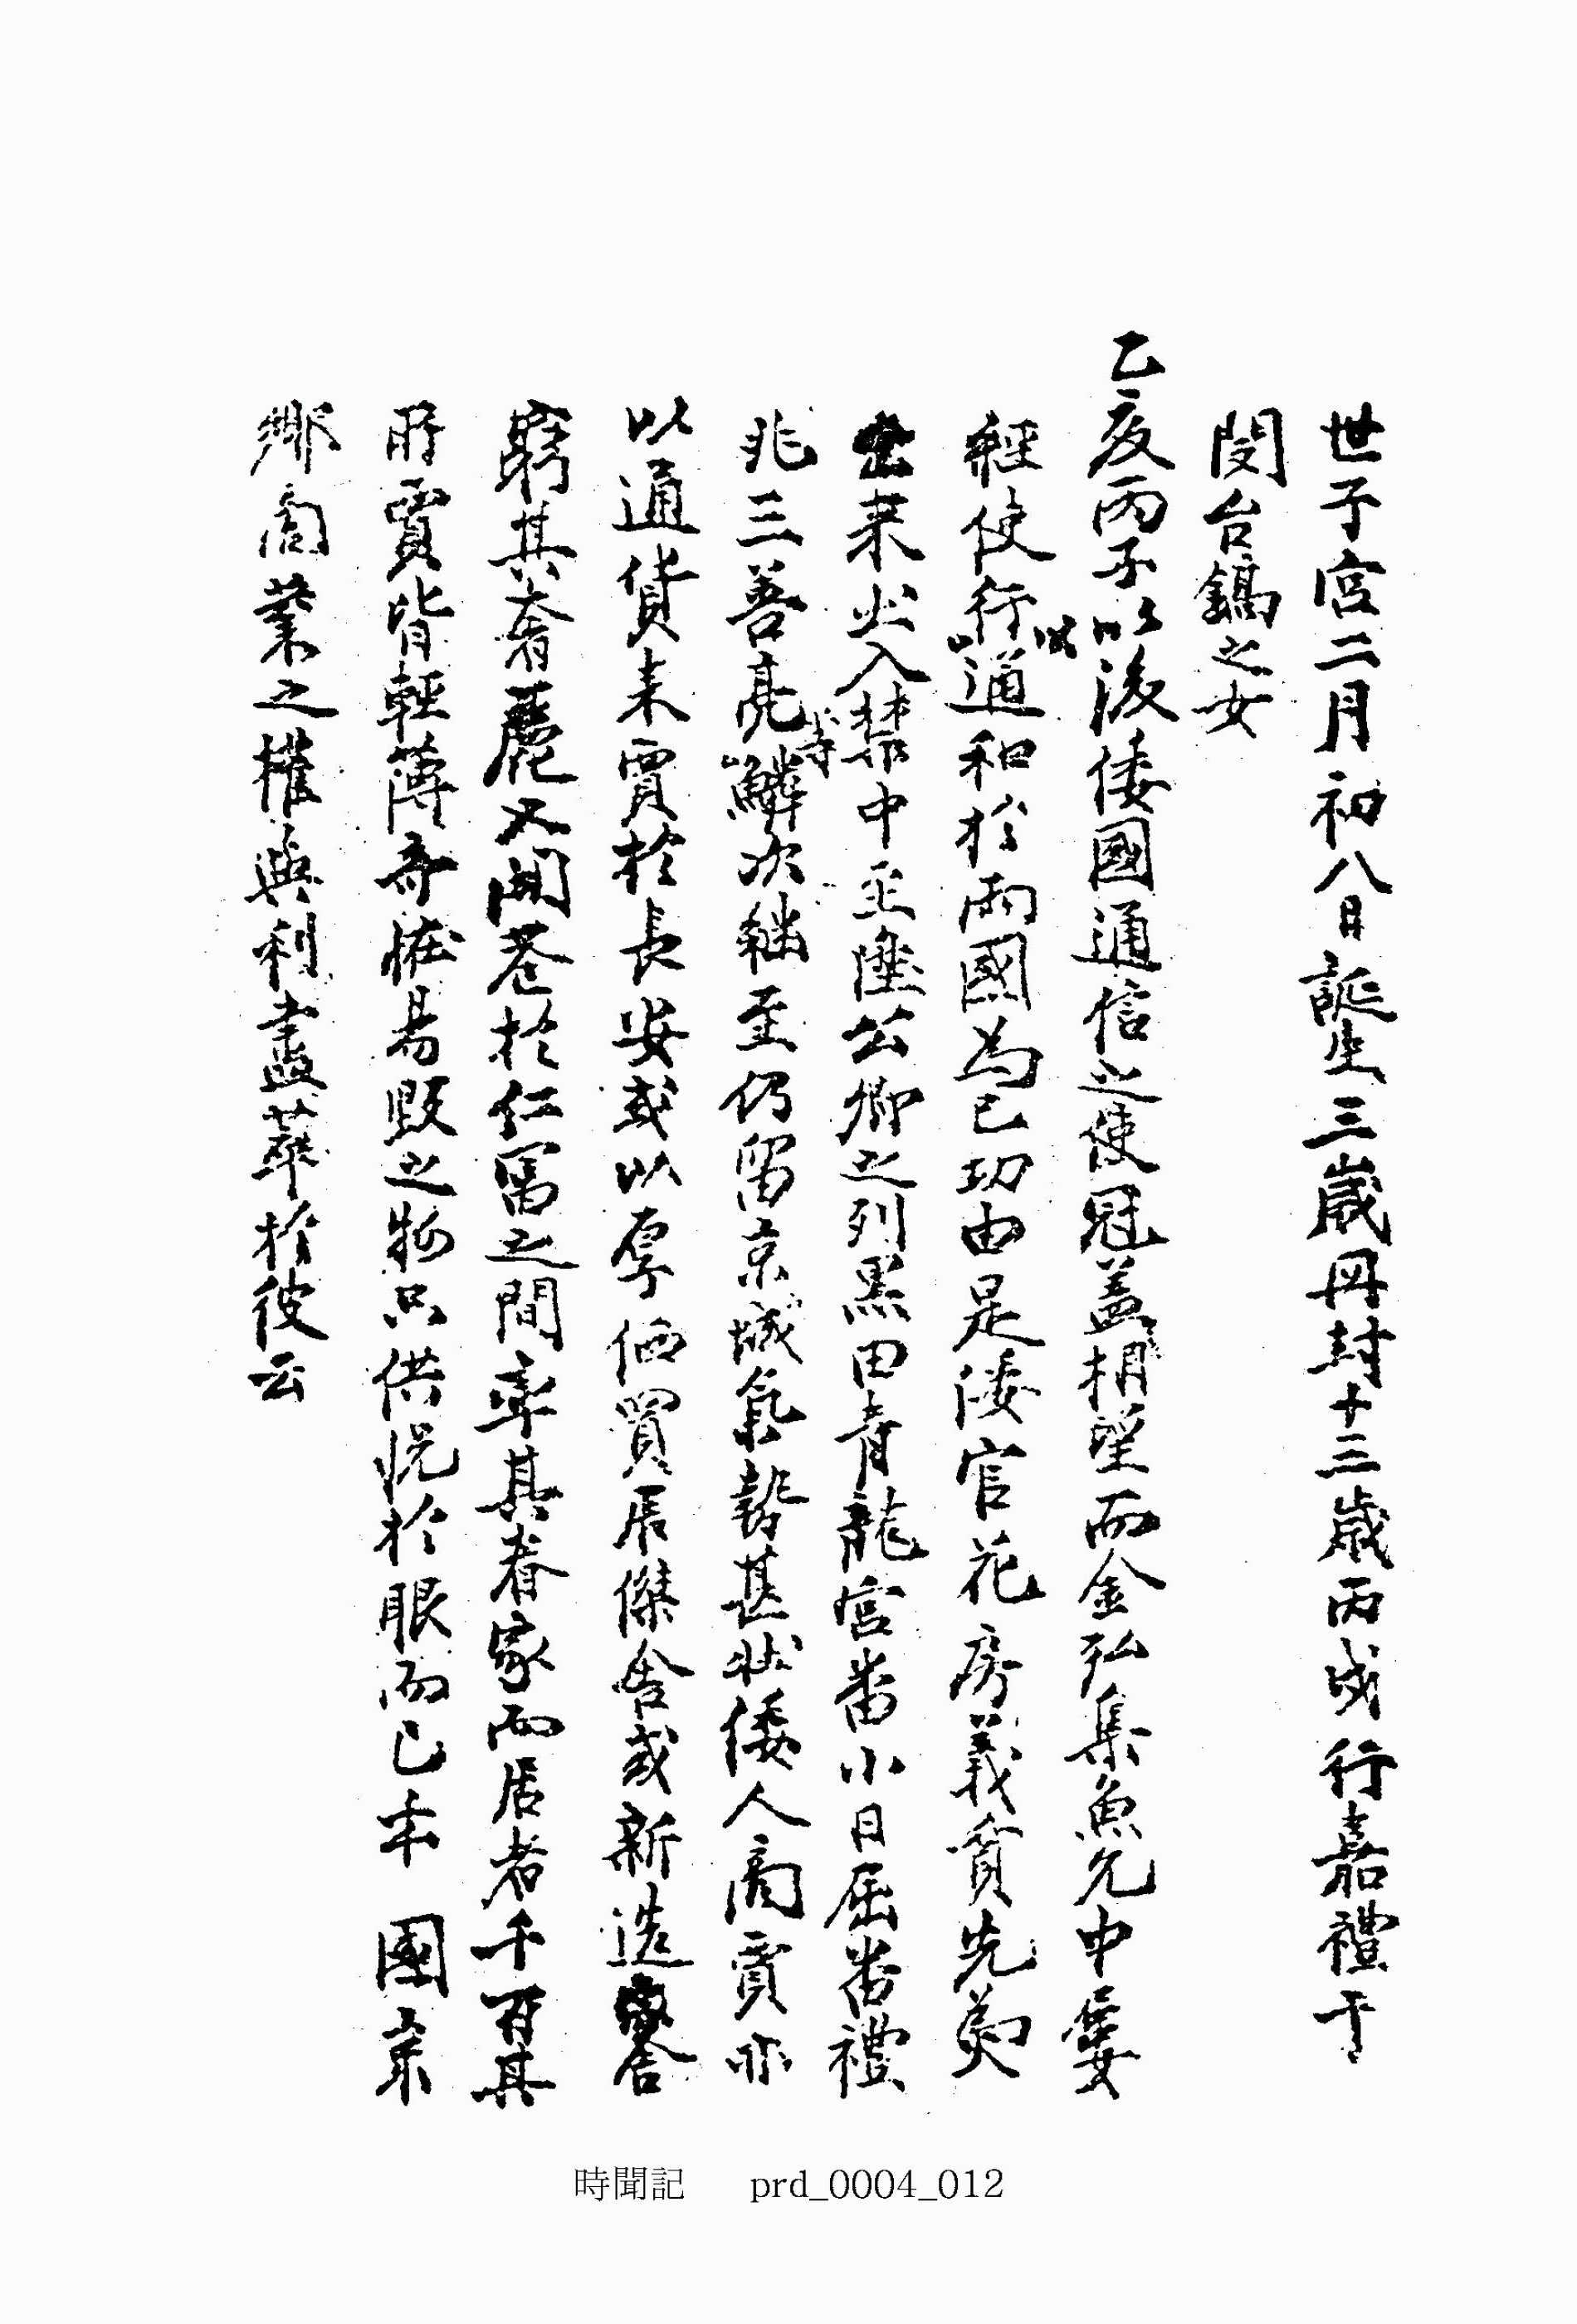 世子宮二月初八日誕生三歲冊封十三歲丙戌行嘉禮于
閔台鎬之女
乙亥丙子以後倭國通信之使冠盖相望而金弘集魚允中屢
經使行以通和於兩國爲已功由是倭官花房義質先爲
來出入禁中至陞公卿之列黑田靑龍宮番小日屈番禮
兆三善亮等鱗次継至仍留京城氣勢甚壯倭人商賈亦
以通貨來賈於長安或以厚価買居傑舍或新造舍
窮其奢麗又開巷於仁富之間率其眷家而居者千百其
所賣皆輕薄奇恠易毁之物只供悅於眼而已本 國京
鄕商業之權與利盡萃於彼云
時聞記 prd_0004_012